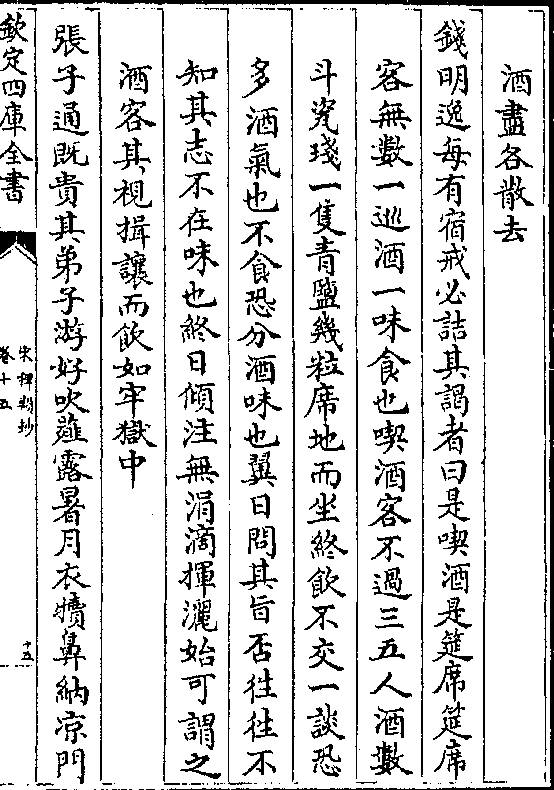 酒盡各散去
錢明逸每有宿戒必詰其謁者曰是喫酒是筵席筵席
客無數一巡酒一味食也喫酒客不過三五人酒數
斗瓷琖一隻青鹽幾粒席地而坐終飲不交一談恐
多酒氣也不食恐分酒味也翼日問其旨否徃徃不
知其志不在味也終日傾注無涓滴揮灑始可謂之
酒客其視揖讓而飲如牢獄中
張子通既貴其弟子游好吹薤露暑月衣犢鼻納凉門
欽定四庫全書
宋稗類鈔
卷十五
十五